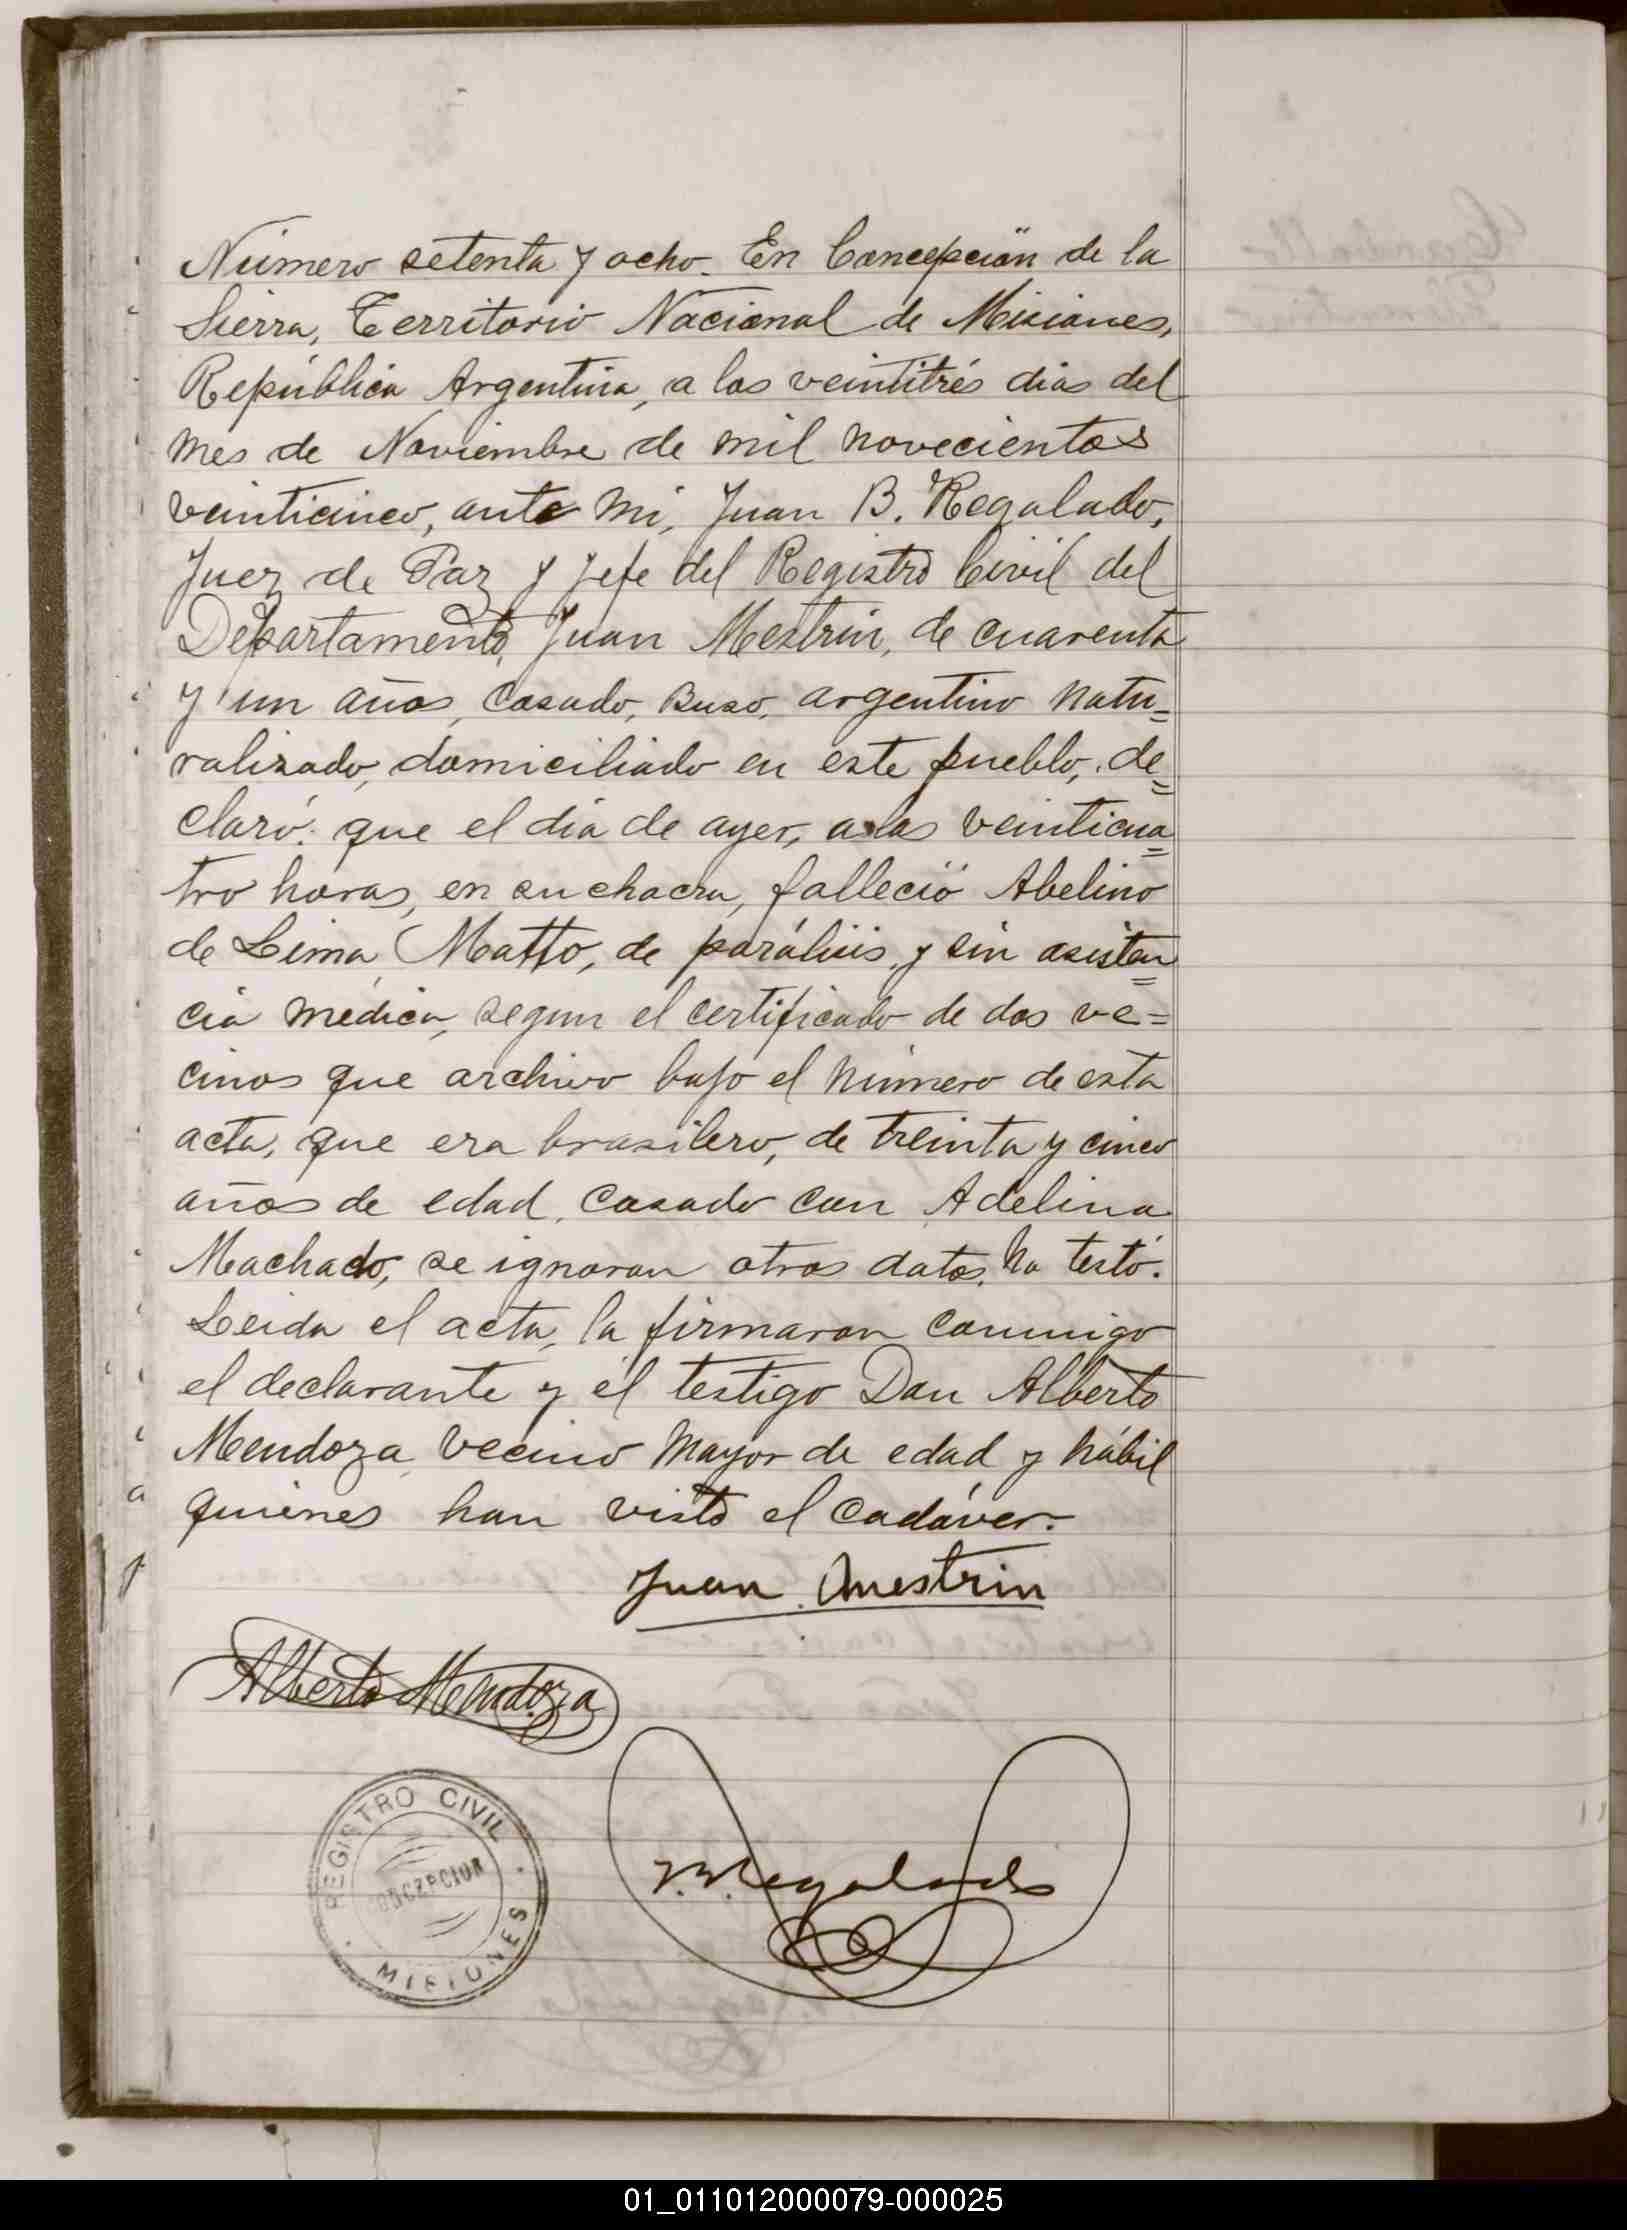 Número setenta y ocho. En Concepción de la
Sierra, Territorio Nacional de Misiones,
República Argentina, a los veintitrés dias del
mes de Noviembre de mil novecientos
veinticinco, ante mi, Juan B. Regalado,
Juez de Paz y Jefe del Registro Civil del
Departamento, Juan Mestrin, de cuarenta
y un años, casado, Ruso, argentino natu=
ralizado, domiciliado en este pueblo, de=
claró: que el día de ayer, a las veinticua=
tro horas, en su chacra, falleció Abelino
de Lima Matto, de parálisis, y sin asisten=
cia médica, segun el certificado de dos ve=
cinos que archivo bajo el número de esta
acta, que era brasilero, de treinta y cinco
años de edad, casado con Adelina
Machado, se ignoran otros datos. No testó.
Leida el acta, la firmaron conmigo
el declarante y el testigo Don Alberto
Mendoza, vecino mayor de edad y hábil
quienes han visto el cadáver.-
Juan Mestrin
Alberto Mendoza
J.B. Regalado
REGISTRO CIVIL
CONCEPCION
MISIONES
01_011012000079-000025